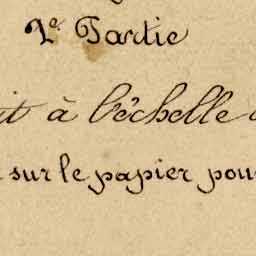 2e. Partie
it à l'échelle
sur le papier pour